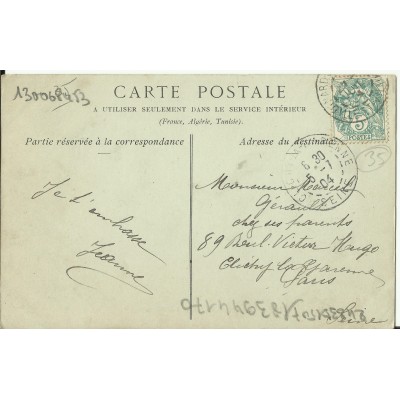 130068453
CARTE POSTALE
A UTILISER SEULEMENT DANS LE SERVICE INTÉRIEUR
(France, Algérie, Tunisie).
Partie réservée à la correspondance
Adresse du destinataire
35
Je t'embrasse
Jeanne
Monsieur
Gérault
chez ses parents
89 Boul. Victor Hugo
Clichy la Garenne
Paris
Seine